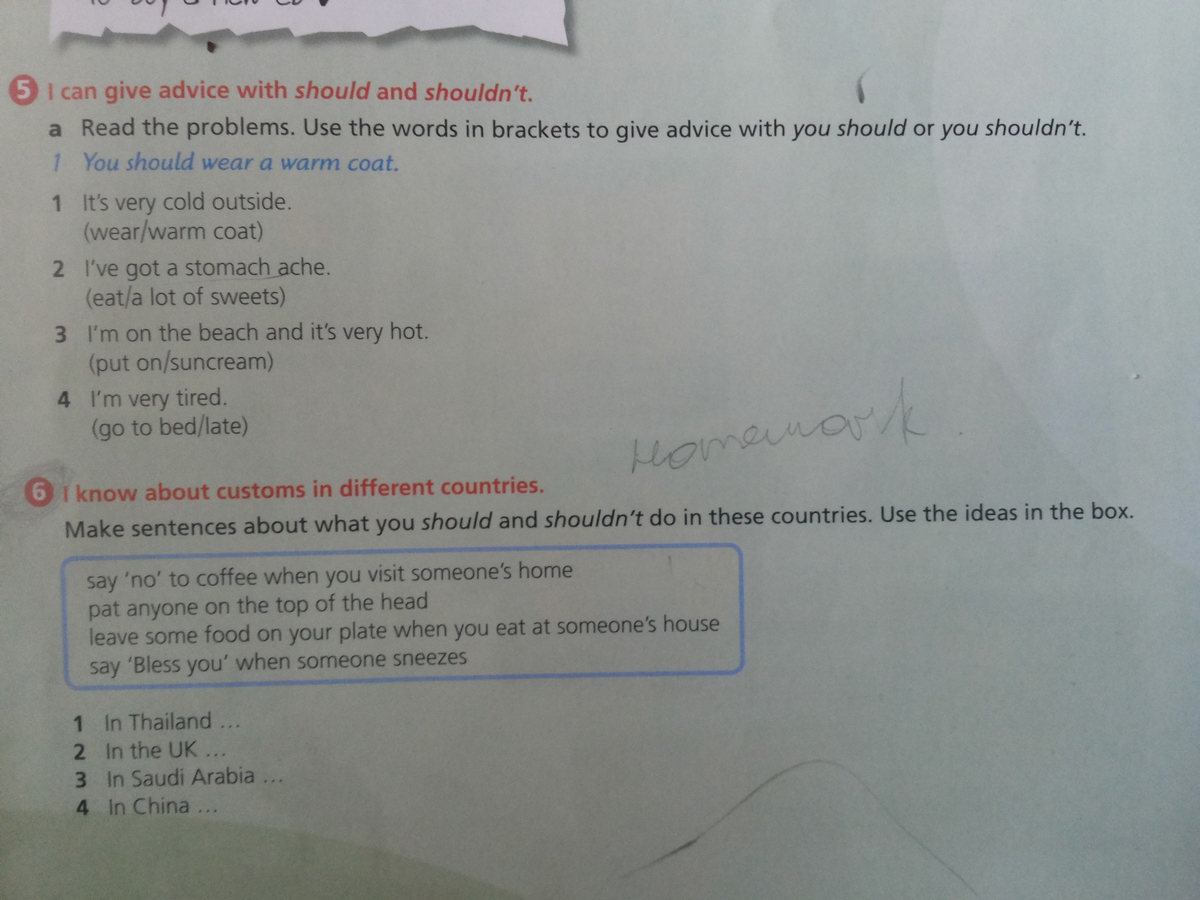 5 I can give advice with should and shouldn't.
a Read the problems. Use the words in brackets to give advice with you should or you shouldn't.
1 You should wear a warm coat.
1 It's very cold outside.
(wear/warm coat)
2 I've got a stomach ache.
(eat/a lot of sweets)
3 I'm on the beach and it's very hot.
(put on/suncream)
4 I'm very tired.
(go to bed/late)
Homework.
6 I know about customs in different countries.
Make sentences about what you should and shouldn't do in these countries. Use the ideas in the box.
say 'no' to coffee when you visit someone's home
pat anyone on the top of the head
leave some food on your plate when you eat at someone's house
say 'Bless you' when someone sneezes
1 In Thailand ...
2 In the UK ...
3 In Saudi Arabia ...
4 In China ...